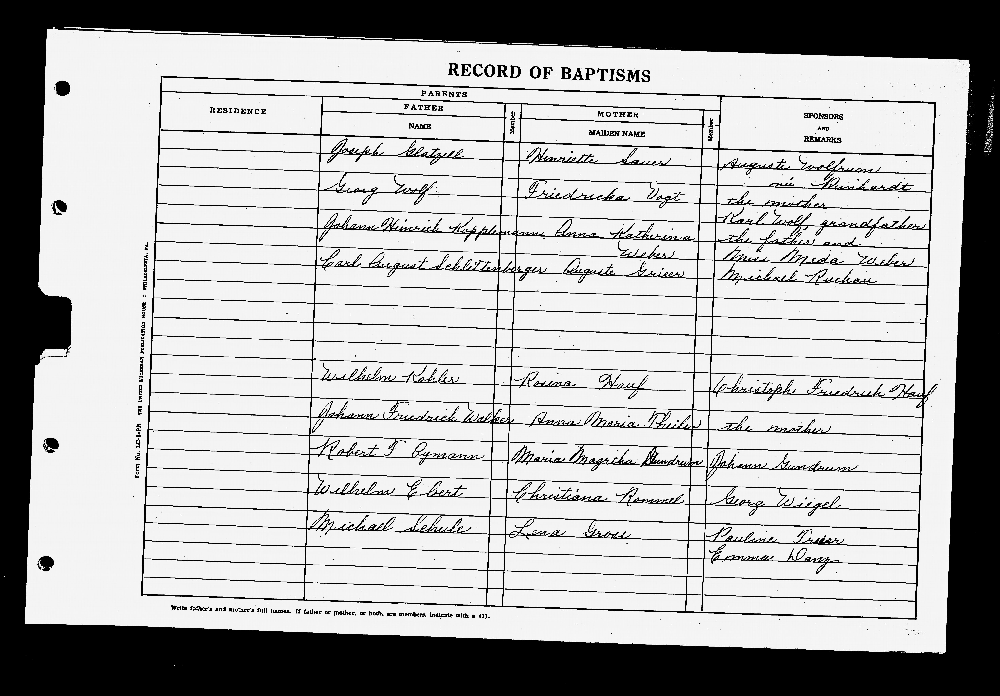 RECORD OF BAPTISMS
PARENTS
RESIDENCE
FATHER
Member
MOTHER
Member
SPONSORS
AND
REMARKS
NAME
MAIDEN NAME
Joseph Glatzell Henriette Sauer Auguste Wolfrum
née Reinhardt
Georg Wolf Friedricka Vogt the mother
Karl Wolf, grandfather
Johann Hinrich Kopplemann Anna Katherina the father and
Weber Miss Meda Weber
Carl August Schlettenberger Auguste Grieser Michael Ruchau
Wilhelm Kohler Rosina Hauf Christoph Friedrich Hauf
Johann Friedrich Walker Anna Maria Theiler the mother
Robert F Oymann Maria Magrika Gundrum Johann Gundrum
Wilhelm Ebert Christiana Rommel Georg Wiegel
Michael Schule Lena Gross Pauline Trieer
Emma Danz
Write father's and mother's full names. If father or mother, or both, are members, indicate with a (x).
Form No. THE UNITED LUTHERAN PUBLICATION HOUSE : PHILADELPHIA, PA.